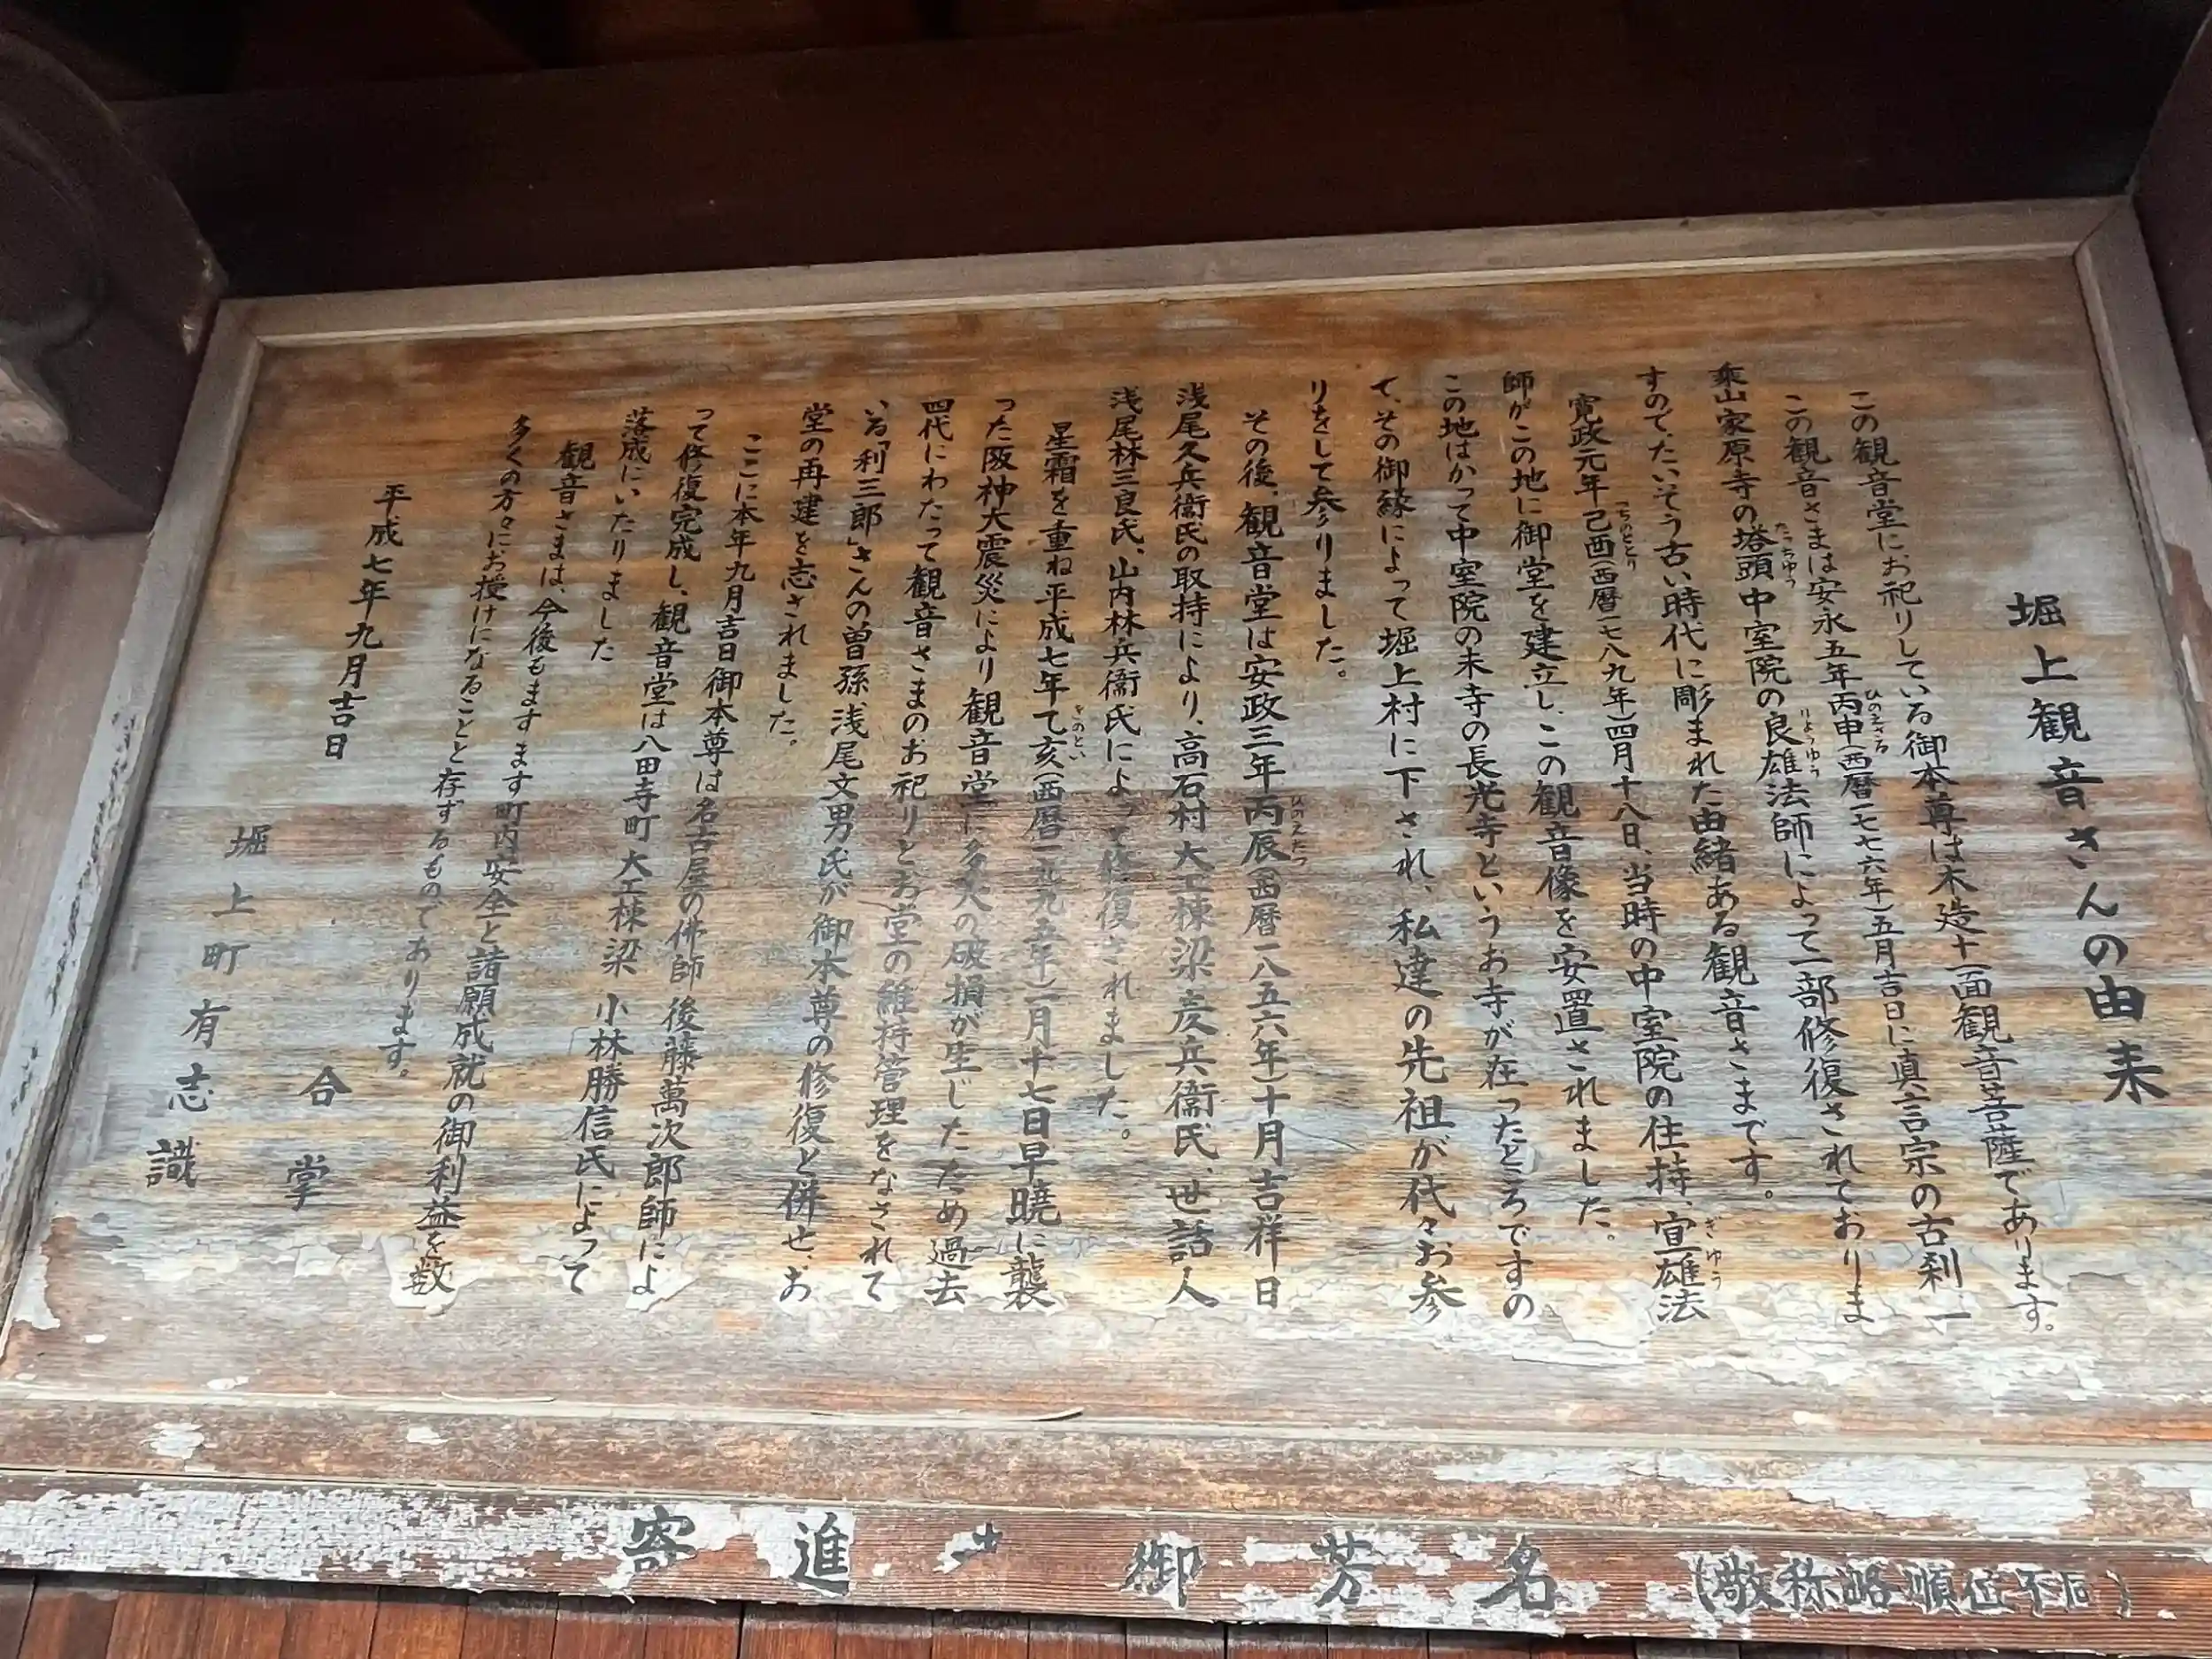 堀上観音さんの由来
この観音堂にお祀りしている御本尊は木造十一面観音菩薩であります。
この観音さまは安永五年丙申(西暦一七七六年)五月吉日に真言宗の古刹、一
乗山家原寺の塔頭中室院の良雄法師によって一部修復されておりま
すので、たいそう古い時代に彫まれた由緒ある観音さまです。
寛政元年己酉(西暦一七八九年)四月十八日、当時の中室院の住持、宜雄法
師がこの地に御堂を建立し、この観音像を安置されました。
この地はかって中室院の末寺の長光寺というお寺が在ったところですの
で、その御縁によって堀上村に下され、私達の先祖が代々お参
りをして参りました。
その後、観音堂は安政三年丙辰(西暦一八五六年)十月吉祥日
浅尾久兵衞氏の取持により、高石村大工棟梁彦兵衞氏、世話人
浅尾林三良氏、山内林兵衞氏によって修復されました。
星霜を重ね平成七年乙亥(西暦一九九五年)一月十七日早暁に襲
った阪神大震災により観音堂に多大の破損が生じたため過去
四代にわたって観音さまのお祀りとお堂の維持管理をなされて
いる「利三郎」さんの曽孫、浅尾文男氏が御本尊の修復と併せ、お
堂の再建を志されました。
ここに本年九月吉日御本尊は名古屋の佛師 後藤萬次郎師によ
って修復完成し、観音堂は八田寺町 大工棟梁 小林勝信氏によって
落成にいたりました
観音さまは、今後もますます町内安全と諸願成就の御利益を数
多くの方々にお授けになることと存ずるものであります。
平成七年九月吉日
合掌
堀上町有志識
寄進 御芳名 (敬称略順位不同)